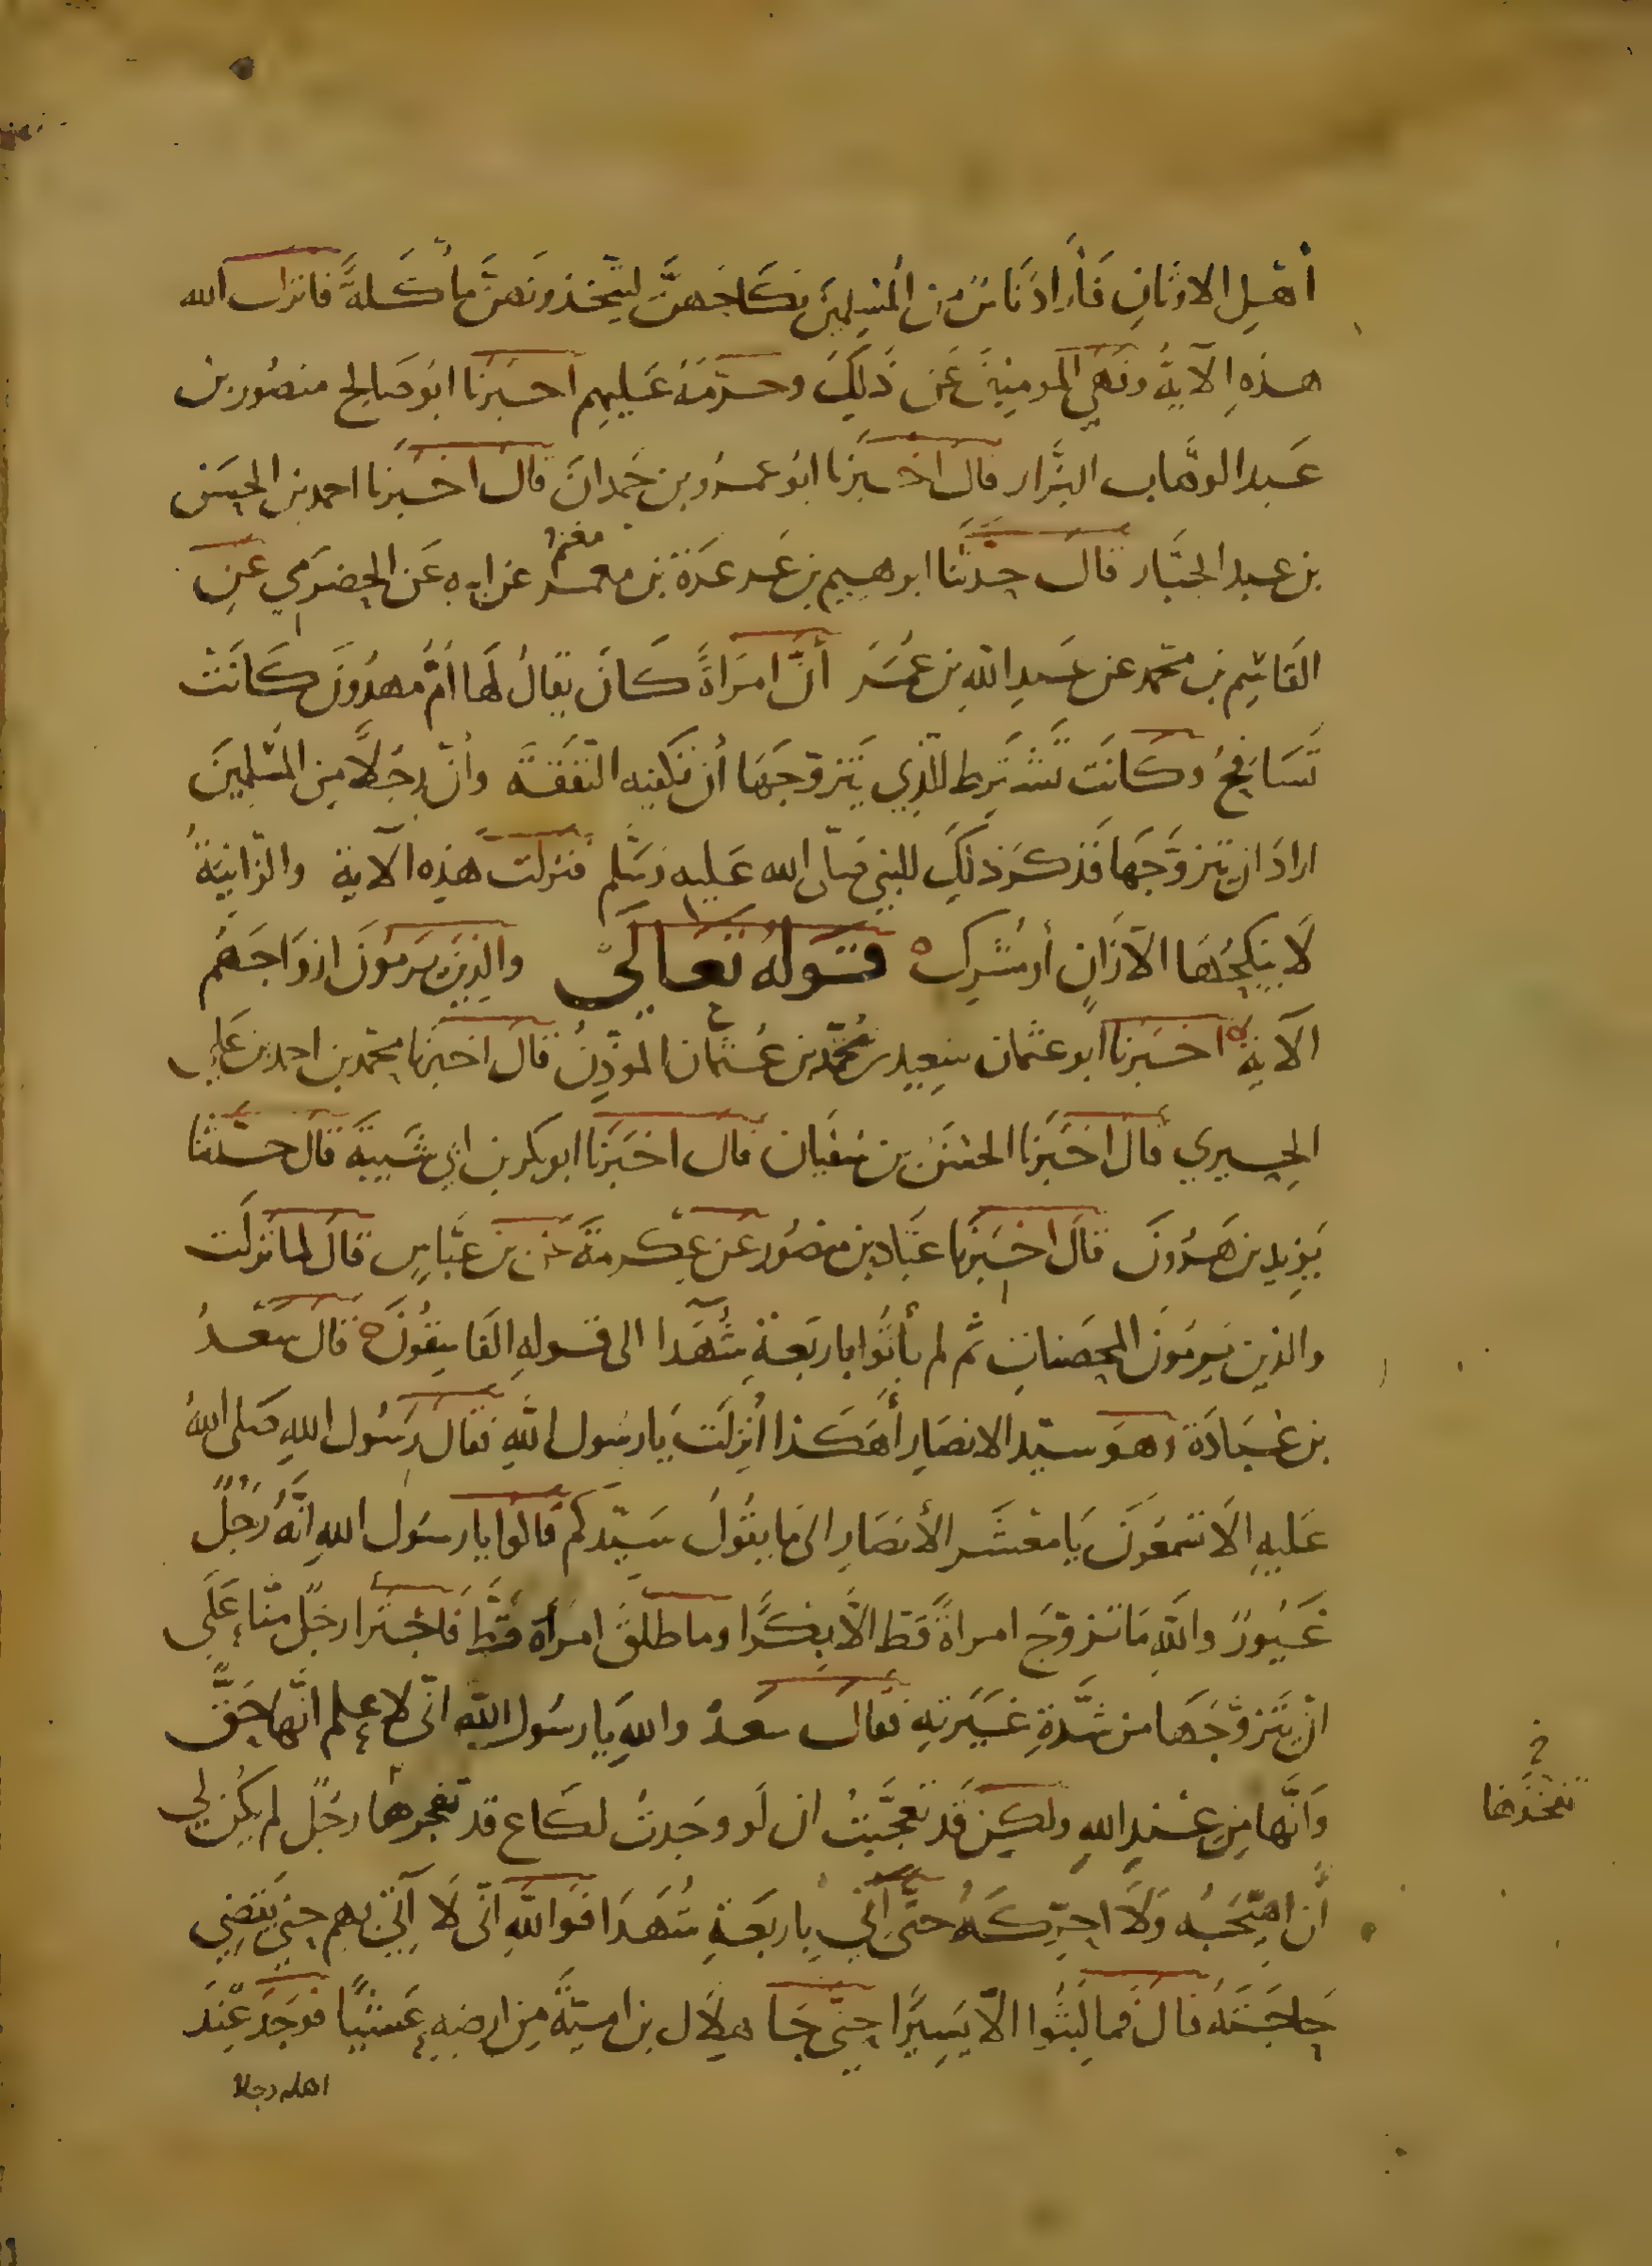 أهل الاوثان فأراد ناس من المسلمين نكاحهن ليتخذونهن مأكلة فانزل الله
هذه الآية ونهى المومنين عن ذلك وحرمه عليهم اخبرنا ابو صالح منصور بن
عبد الوهاب البزار قال اخبرنا ابو عمرو بن حمدان قال اخبرنا احمد بن الحسن
بن عبد الجبار قال حدثنا ابرهيم بن عرعرة بن معمر عن ابيه عن الحضرمي عن
معتمر
القاسم بن محمد عن عبد الله بن عمر أن امراة كان يقال لها ام مهدون كانت
تسافح وكانت تشترط للذي يتزوجها أن تكفيه النفقة وأن رجلا من المسلمين
اراد ان يتزوجها فذكر ذلك للنبي صلى الله عليه وسلم فنزلت هذه الآية والزانية
لا ينكحها الا زان أو مشرك قوله تعالى والذين يرمون ازواجهم
الآية اخبرنا ابو عثمان سعيد بن محمد بن عثمان الموذن قال اخبرنا محمد بن احمد بن علي
الحيري قال اخبرنا الحسن بن سفيان قال اخبرنا ابو بكر بن ابي شيبة قال حدثنا
يزيد بن هرون قال اخبرنا عباد بن منصور عن عكرمة عن بن عباس قال لما نزلت
والذين يرمون المحصنات ثم لم يأتوا باربعة شهدا الى قوله الفاسقون قال سعد
بن عبادة وهو سيد الانصار أهكذا انزلت يا رسول الله فقال رسول الله صلى الله
عليه الا تسمعون يا معشر الأنصار الى ما يقول سيدكم قالوا يا رسول الله انه رجل
غيور والله ما تزوج امراة قط الا بكرا وما طلق امرأة قط فاجترا رجل منا على
ان يتزوجها من شدة غيرته فقال سعد والله يا رسول الله انى لاعلم انها حق
وانها من عند الله ولكن قد تعجبت ان لو وجدت لكاع قد تفجرها رجل لم يكن لي
تفخذها
أن اهيجه ولا احركه حتى اتي باربعة شهدا فوالله انى لا آتي بهم حتى يقضي
حاجته قال فما لبثوا الا يسيرا حتى جا هلال بن امية من ارضه عشيا فوجد عند
اهله رجلا